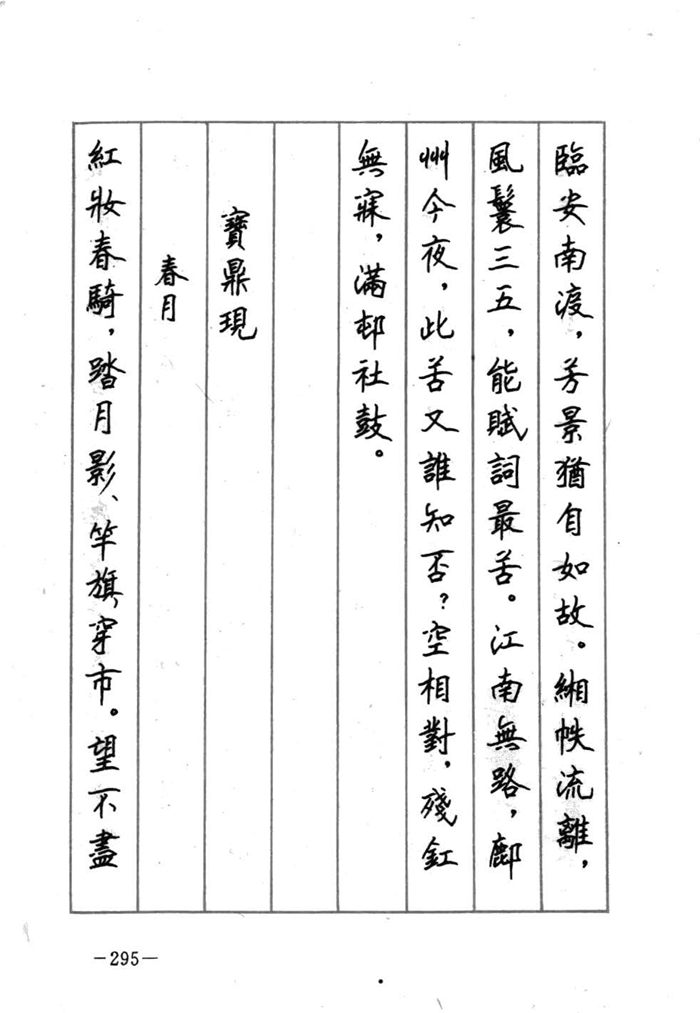 臨安南渡，芳景猶自如故。緗帙流離，
風鬟三五，能賦詞最苦。江南無路，鄜
州今夜，此苦又誰知否？空相對，殘釭
無寐，滿邨社鼓。
寶鼎現
春月
紅妝春騎，踏月影、竿旗穿市。望不盡
—295—